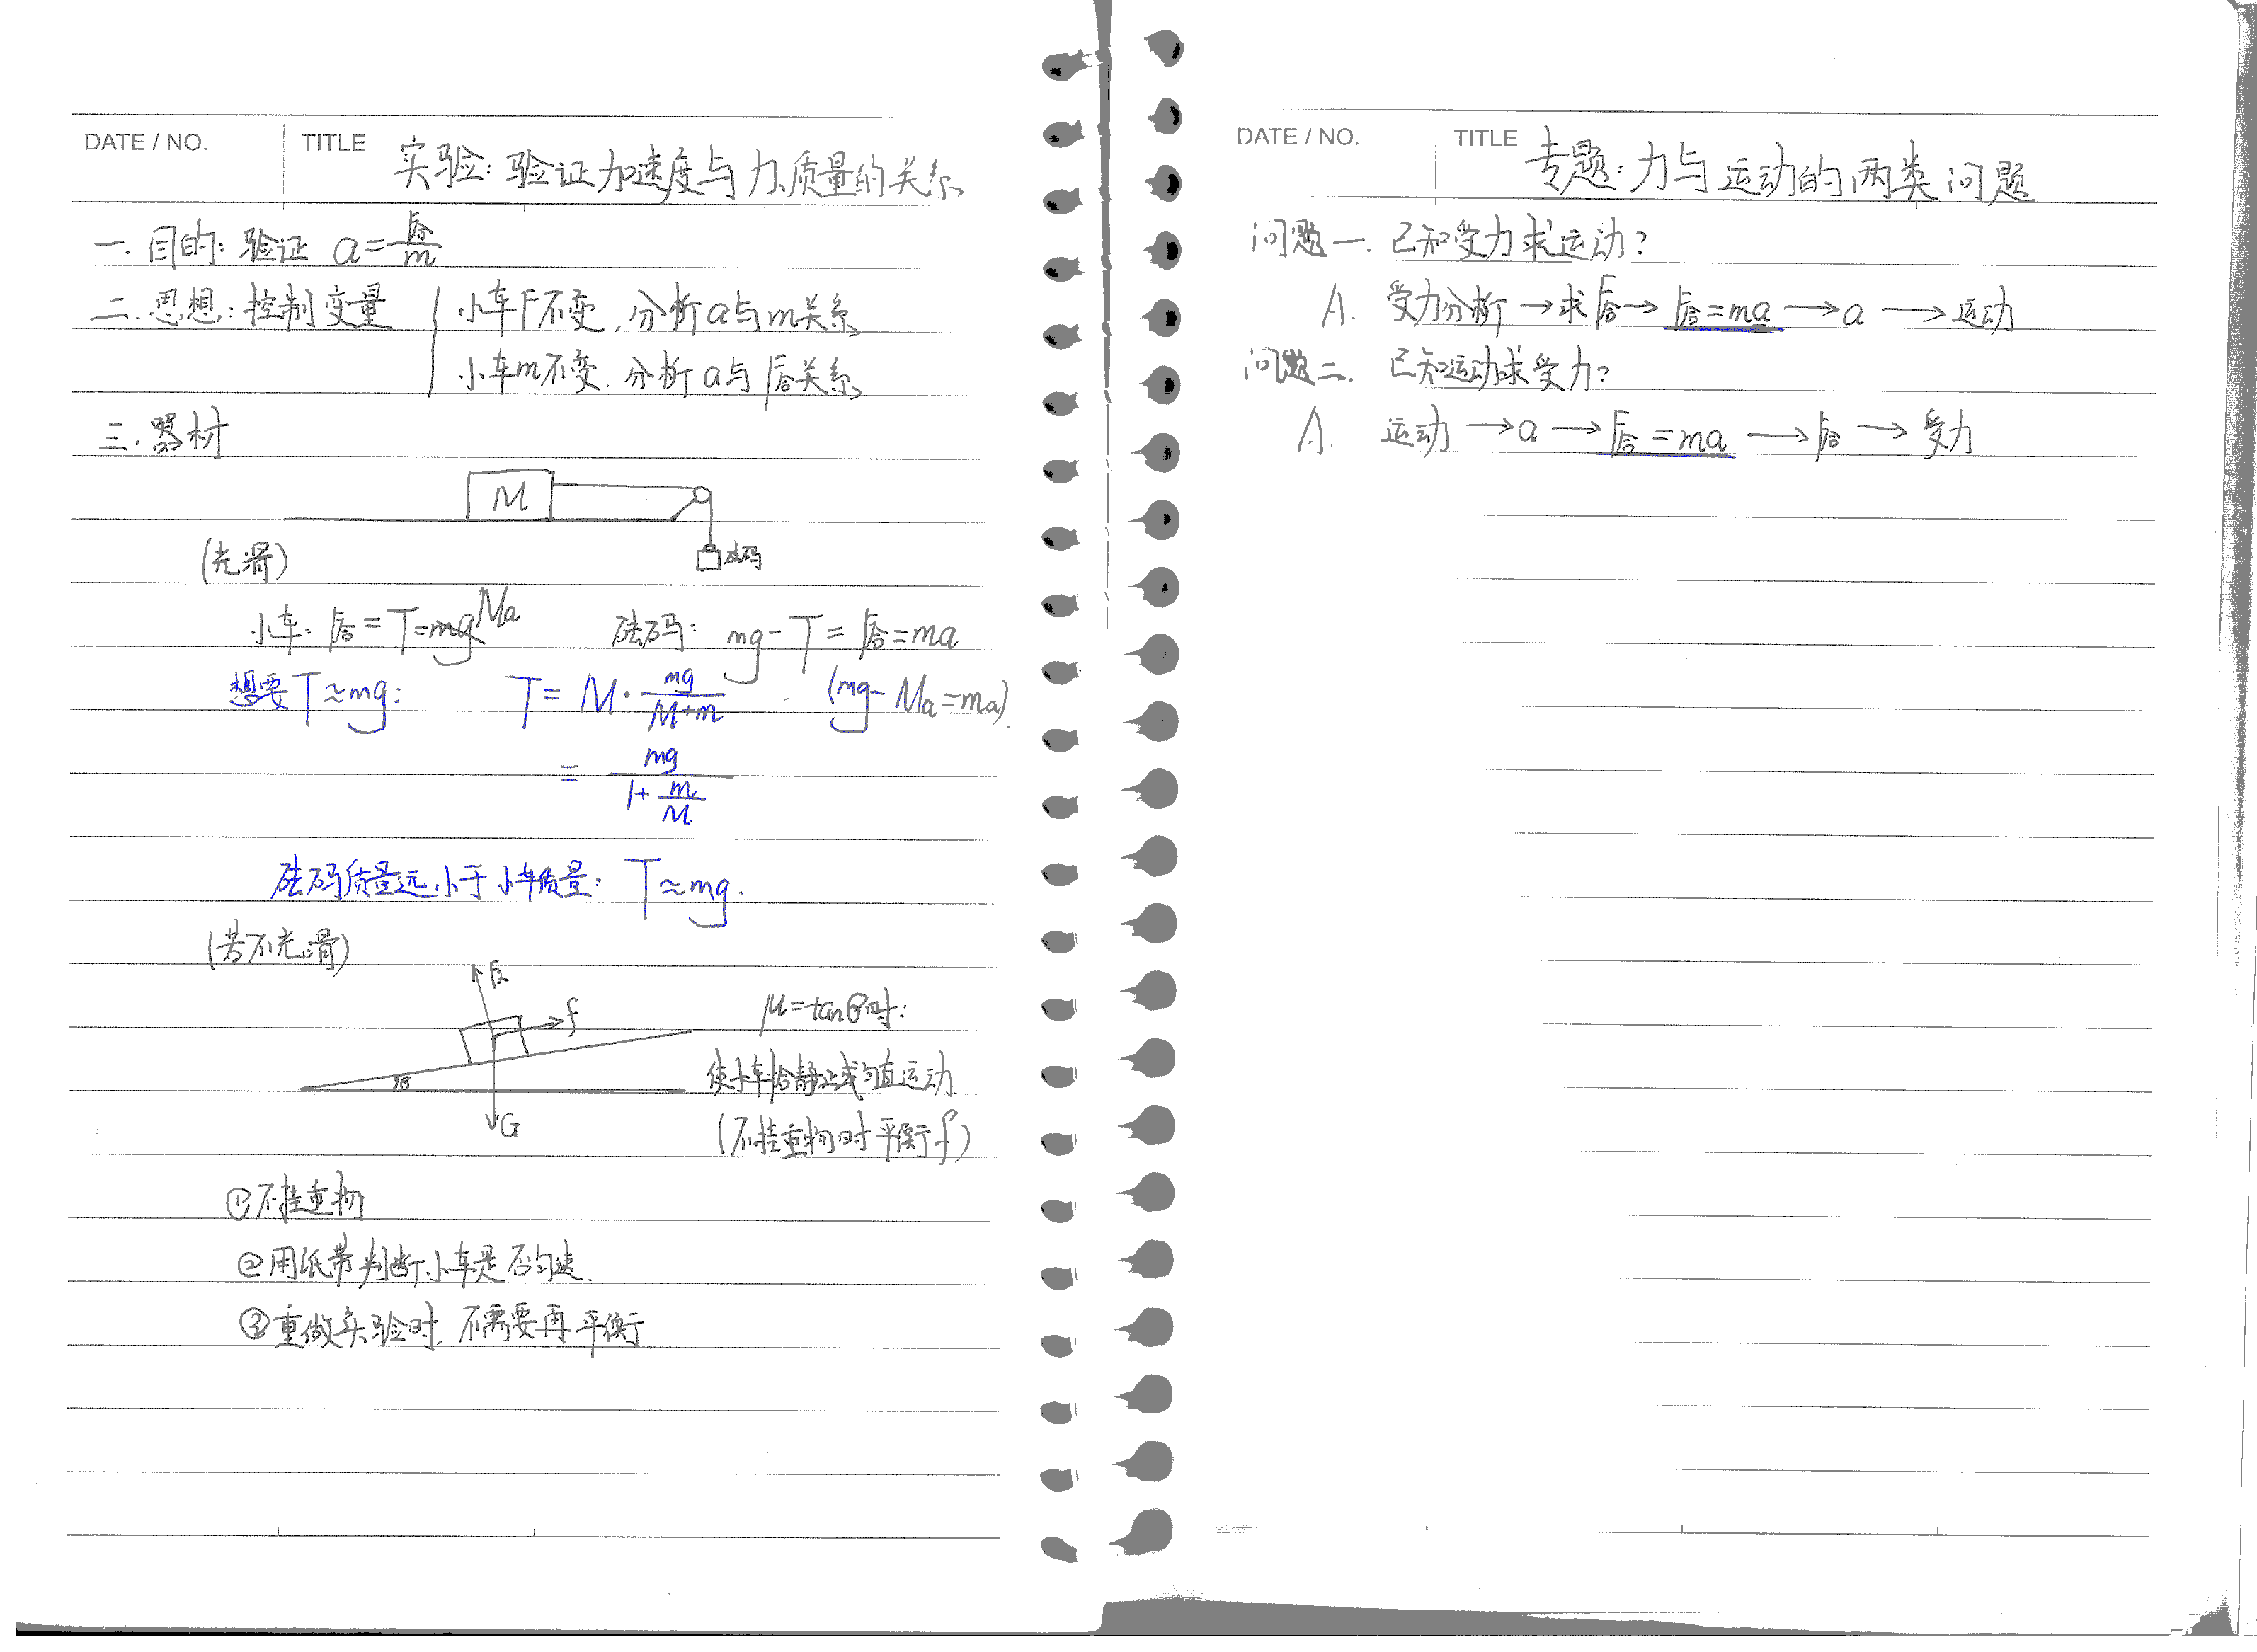 DATE / NO.
TITLE 实验：验证加速度与力、质量的关系
一. 目的：验证 a=F合/m
二. 思想：控制变量
小车F不变，分析a与m关系
小车m不变，分析a与F合关系
三. 器材
M
砝码
(光滑)
小车：F合=T=mg Ma 砝码：mg-T=F合=ma
想要T≈mg: T=M·mg/(M+m) (mg-Ma=ma).
= mg/(1+m/M)
砝码质量远小于小车质量：T≈mg.
(若不光滑)
f
θ
G
μ=tanθ时：
使小车恰静止或匀直运动
(不挂重物时平衡f)
①不挂重物
②用纸带判断小车是否匀速.
③重做实验时，不需要再平衡.
DATE / NO.
TITLE 专题：力与运动的两类问题
问题一. 已知受力求运动？
A. 受力分析→求F合→F合=ma→a→运动
问题二. 已知运动求受力？
A. 运动→a→F合=ma→F合→受力